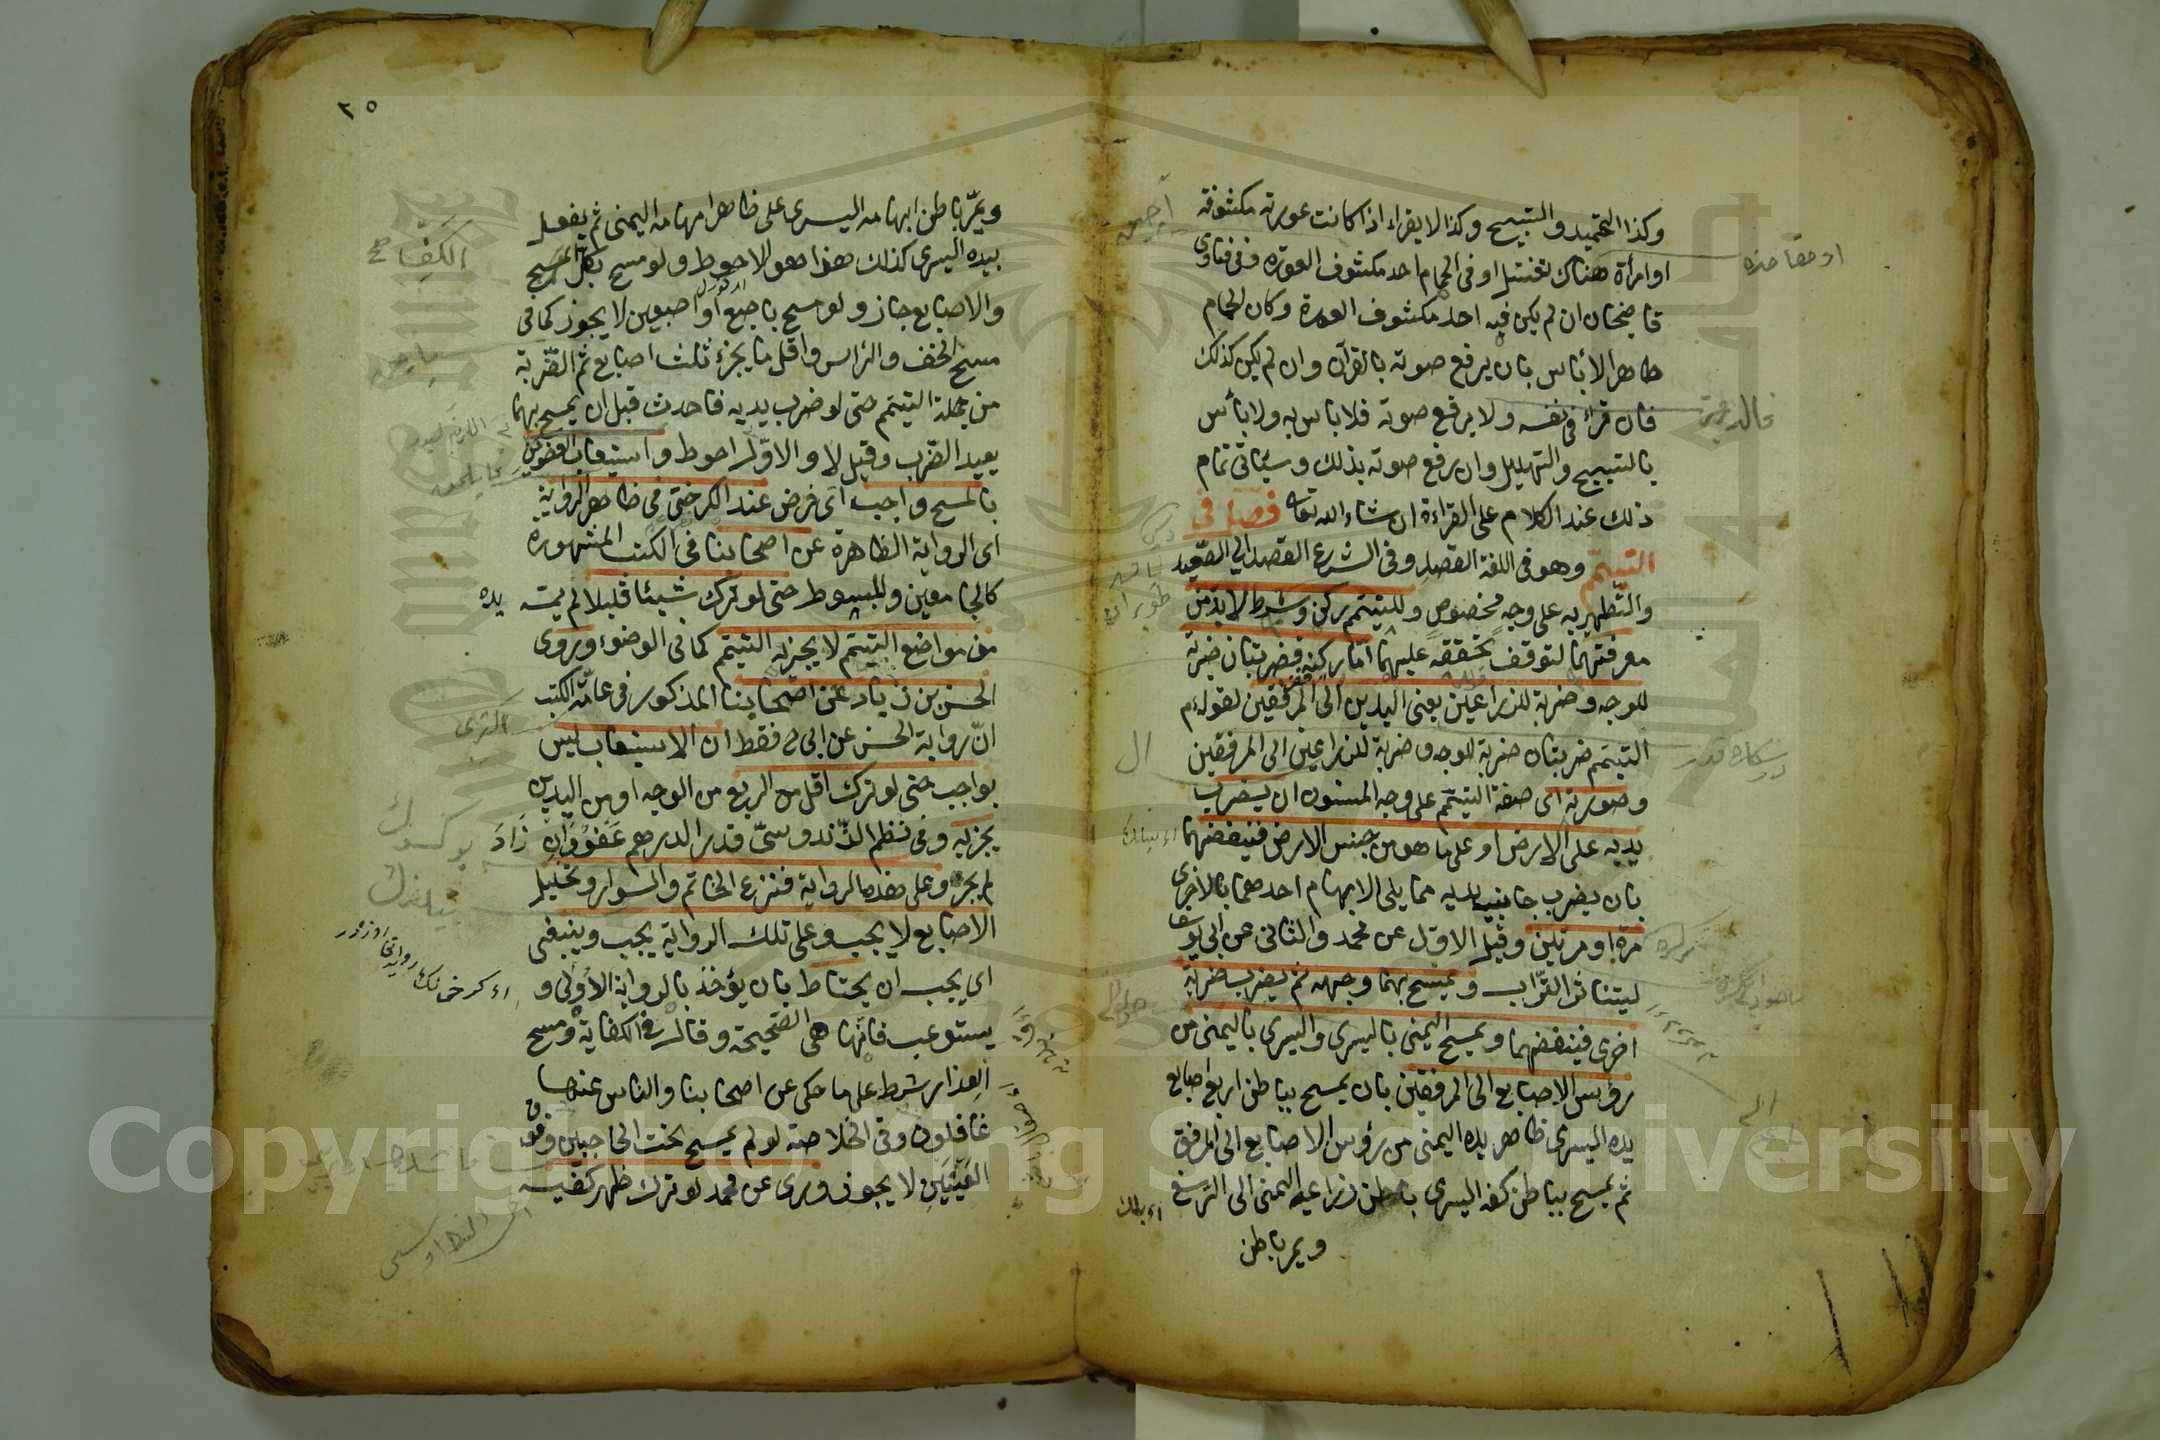 وكذا التحميد والتسبيح وكذا لا يقراء اذا كانت عورته مكشوفة
او امرأة هناك تغتسل او في الحمام احد مكشوف العورة وفي فتاوى
قاضيخان ان لم يكن فيه احد مكشوف العورة وكان الحمام
طاهرا لا بأس بان يرفع صوته بالقرآن وان لم يكن كذلك
فان قرأ في نفسه ولا يرفع صوته فلا باس به ولا بأس
بالتسبيح والتهليل وان رفع صوته بذلك وسيأتي تمام
ذلك عند الكلام على القراءة ان شاء الله تعا فصل في
التيمم وهو في اللغة القصد وفي الشرع القصد الى الصعيد
والتطهير به على وجه مخصوص وللتيمم ركن وشرط لا بد من
معرفتهما لتوقف تحققه عليهما اما ركنه فضربتان ضربة
للوجه وضربة للذراعين يعني اليدين الى المرفقين لقوله م
التيمم ضربتان ضربة للوجه وضربة للذراعين الى المرفقين
وصورته اى صفة التيمم على وجه المسنون ان يضرب
يديه على الارض او على ما هو من جنس الارض فينفضهما
بان يضرب جانب يديه مما يلى الابهام احدهما بالاخرى
مرة او مرتين وقيل الاول عن محمد والثاني عن ابي يوسف
ليتناثر التراب ويمسح بهما وجهه ثم يضرب ضربة
اخرى فينفضهما ويمسح اليمنى باليسرى واليسرى باليمنى من
رؤس الاصابع الى المرفقين بان يمسح بباطن اربع اصابع
يده اليسرى ظاهر يده اليمنى من رؤس الاصابع الى المرفق
ثم يمسح بباطن كفه اليسرى باطن ذراعيه اليمنى الى الرسغ
ويمر باطن
٢٥
ويمر باطن ابهامه اليسرى على ظاهر ابهامه اليمنى ثم يفعل
بيده اليسرى كذلك هذا هو الاحوط ولو مسح بكل
والاصابع جاز ولو مسح باصبع او اصبعين لا يجوز كما في
مسح الخف والرأس واقل ما يجزئ ثلث اصابع ثم الضربة
من جملة التيمم حتى لو ضرب يديه فاحدث قبل ان يمسح بهما
يعيد الضرب وقيل لا والاول احوط واستيعاب العضوين
بالمسح واجب اى فرض عند الكرخي في ظاهر الرواية
اى الرواية الظاهرة عن اصحابنا في الكتب المشهورة
كالجامعين والمبسوط حتى لو ترك شيئا قليلا لم يمسه يده
من مواضع التيمم لا يجزيه التيمم كما في الوضوء وروى
الحسن بن زياد عن اصحابنا المذكور في عامة الكتب
ان رواية الحسن عن ابى ح فقط ان الاستيعاب ليس
بواجب حتى لو ترك اقل من الربع من الوجه او من اليدين
يجزيه وفي نظم الزندوستى قدر الدرهم عفو وان زاد
لم يجز وعلى هذه الرواية فنزع الخاتم والسوار وتخليل
الاصابع لا يجب وعلى تلك الرواية يجب وينبغى
اى يجب ان يحتاط بان يؤخذ بالرواية الاولى و
يستوعب فانها هي الصحيحة وقال في الكفاية ومسح
العذار شرط على ما حكى عن اصحابنا والناس عنها
غافلون وفى الخلاصة لو لم يمسح تحت الحاجبين وفوق
العينين لا يجوز وروى عن محمد لو ترك ظهر كفيه
الكف صح
Copyright © King Saud University